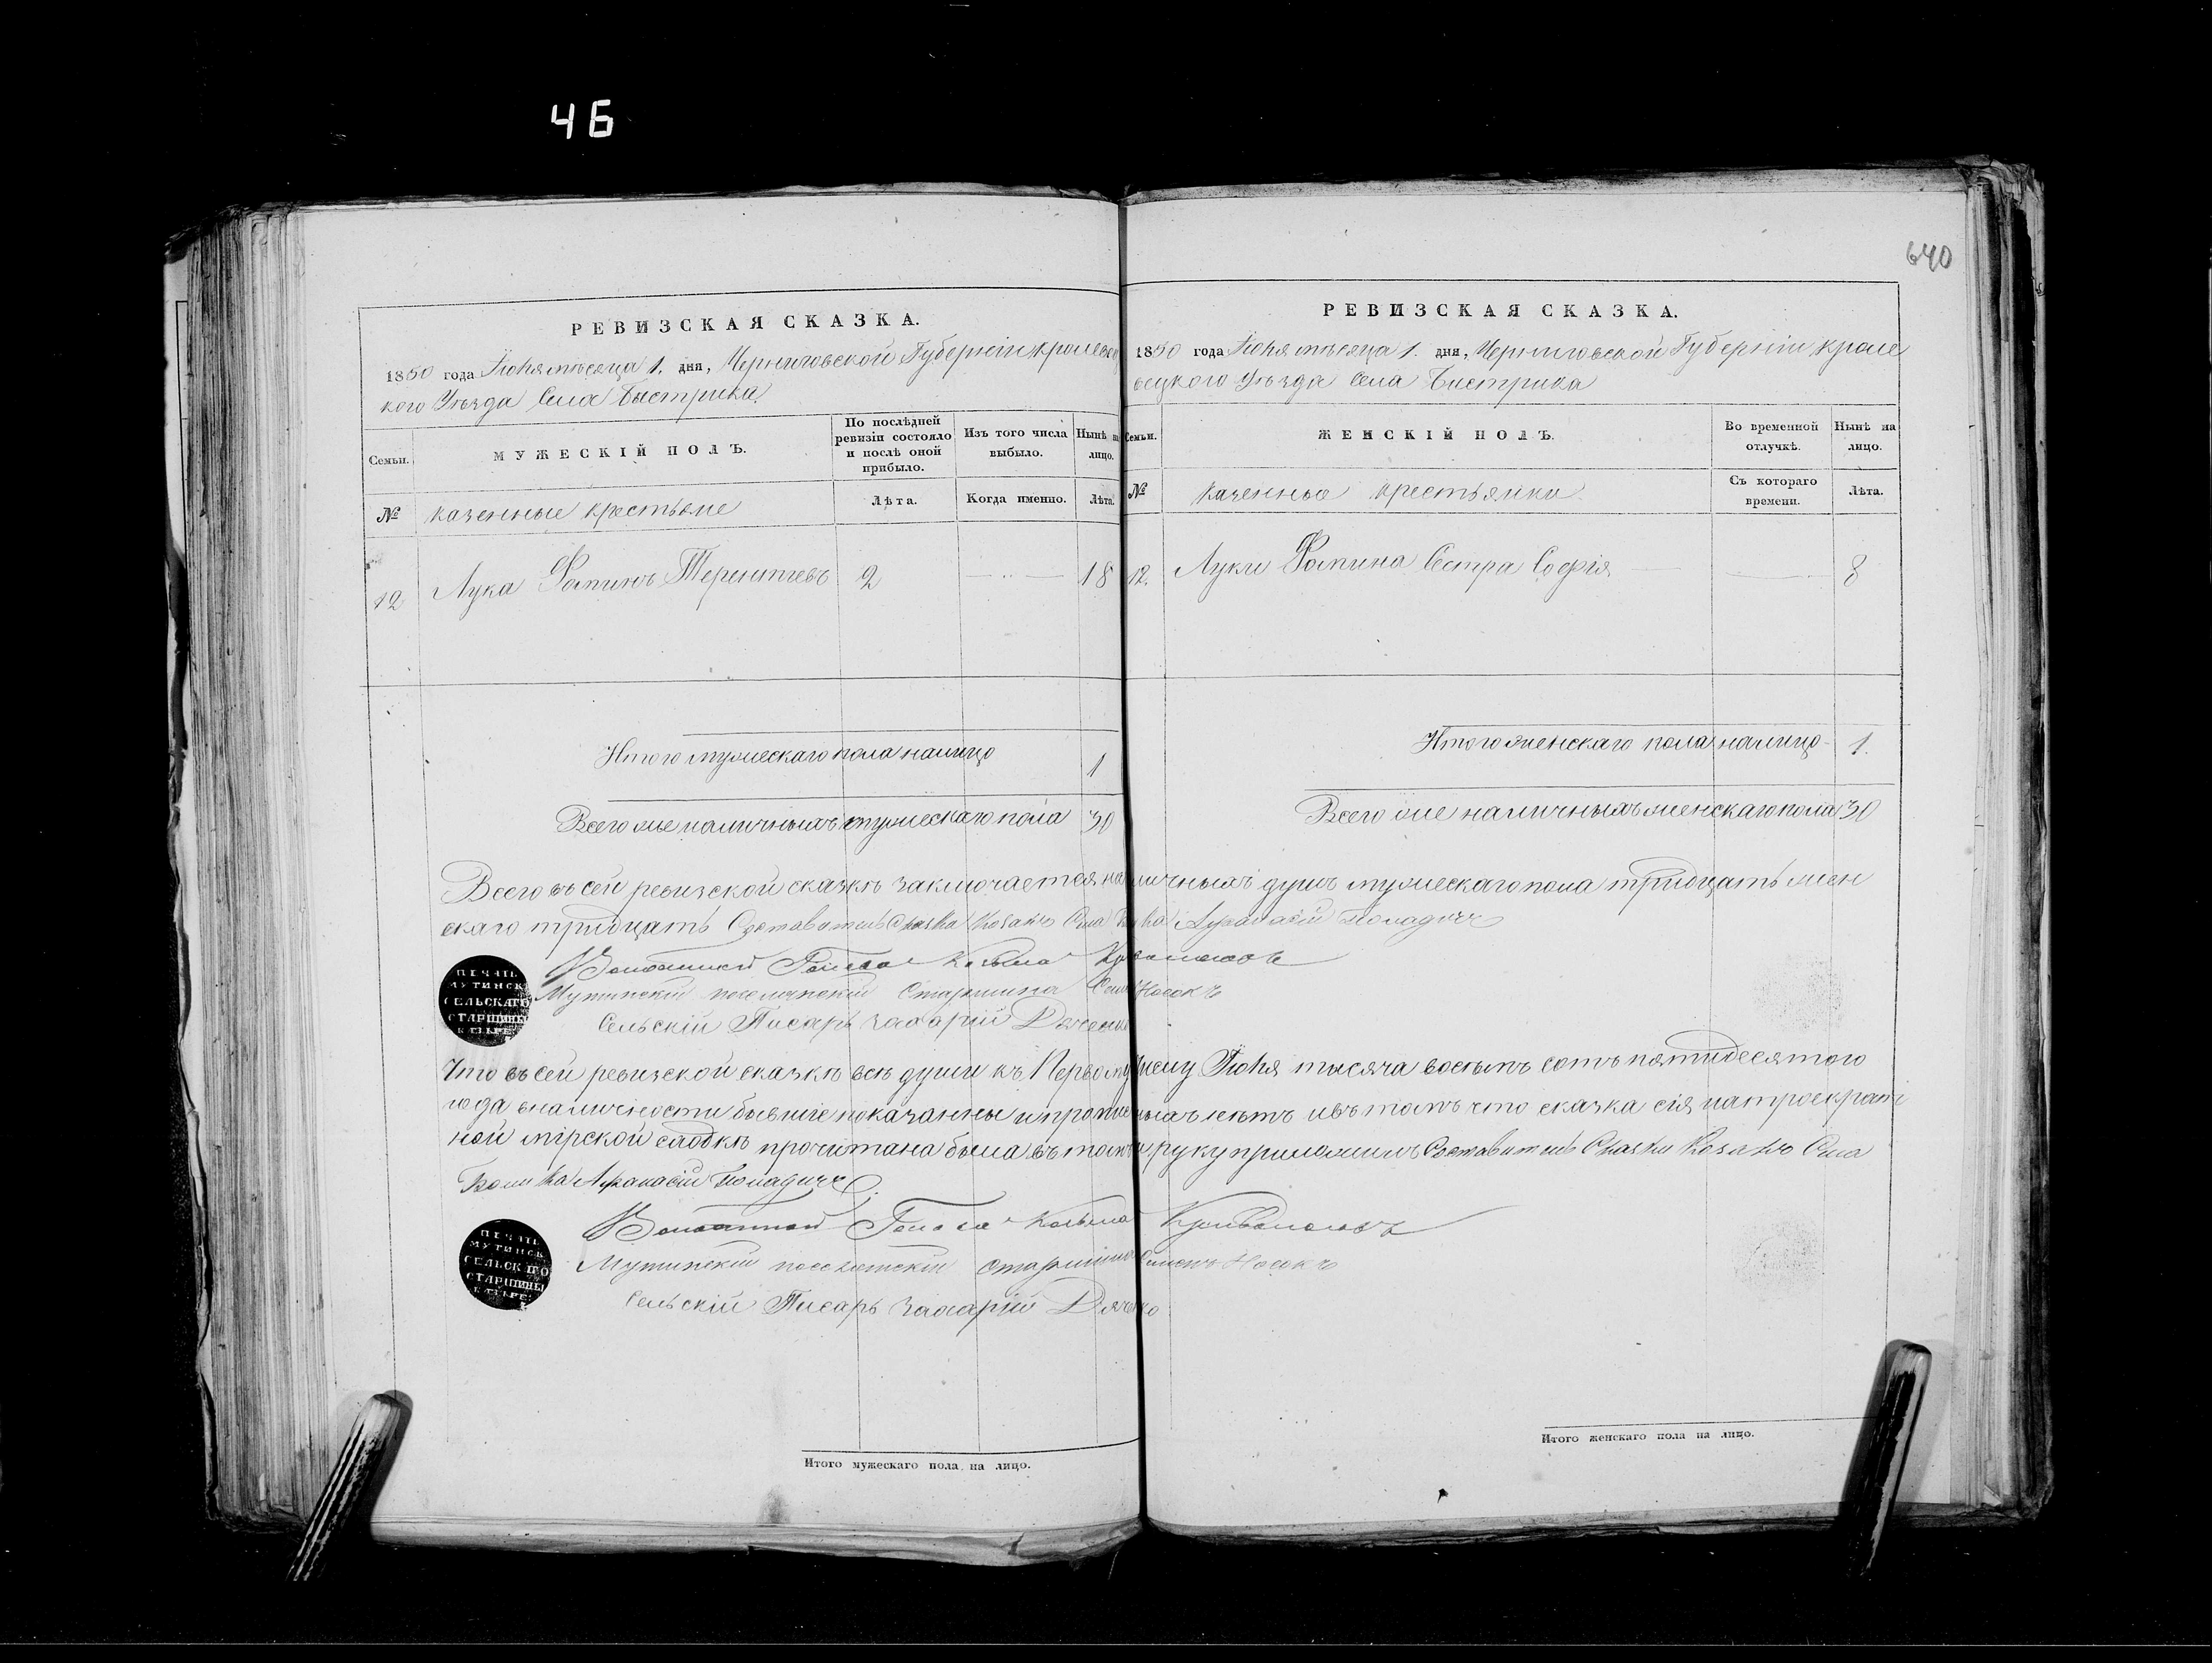 46
640
РЕВИЗСКАЯ СКАЗКА.
1850 года Іюня мѣсяца 1. дня, Черниговской Губерніи Кролевец
кого Уѣзда Села Быстрика.
Семьи.
МУЖЕСКІЙ ПОЛЪ.
По послѣдней ревизіи состояло и послѣ оной прибыло.
Изъ того числа выбыло.
Нынѣ на лицо.
№
казенные крестьяне
Лѣта.
Когда именно.
Лѣта.
12 Лука Фоминъ Терентіевъ 2 18
Итого мужескаго пола налицо 1
Всего же наличныхъ мужескаго пола 30
РЕВИЗСКАЯ СКАЗКА.
1850 года Іюня мѣсяца 1. дня, Черниговской Губерніи Кроле
вецкого Уѣзда Села Бистрика
Семьи.
ЖЕНСКІЙ ПОЛЪ.
Во временной отлучкѣ.
Нынѣ на лицо.
№
казенныя крестьянки
Съ котораго времени.
Лѣта.
12. Луки Фомина Сестра Софія 8
Итого женскаго пола налицо 1.
Всего же наличныхъ женскаго пола 30
Всего въ сей ревизской сказкѣ заключается наличныхъ душъ мужескаго пола тридцать жен
скаго тридцать Составитель Козакъ Села Афанасій
Волостной Голова Козьма
Мутинскій Старшина Носокъ
Сельскій Писарь Захарій
ПЕЧАТЬ МУТИНСК СЕЛЬСКАГО СТАРШИНЫ
Что въ сей ревизской сказкѣ всѣ души къ Первому Іюня тысяча восемь сотъ пятидесятого
года вналичности бывшіе показанны и прописныхъ нѣтъ ивъ томъ что сказка сія на троекрат
ной мірской сходкѣ прочитана была въ томъ и руку приложилъ Составитель Козакъ Села
Афанасій
Волостной Голова Козьма
Мутинскій Старшина Семенъ Носокъ
Сельскій Писарь Захарій
ПЕЧАТЬ МУТИНСК СЕЛЬСКАГО СТАРШИНЫ
Итого мужескаго пола на лицо.
Итого женскаго пола на лицо.